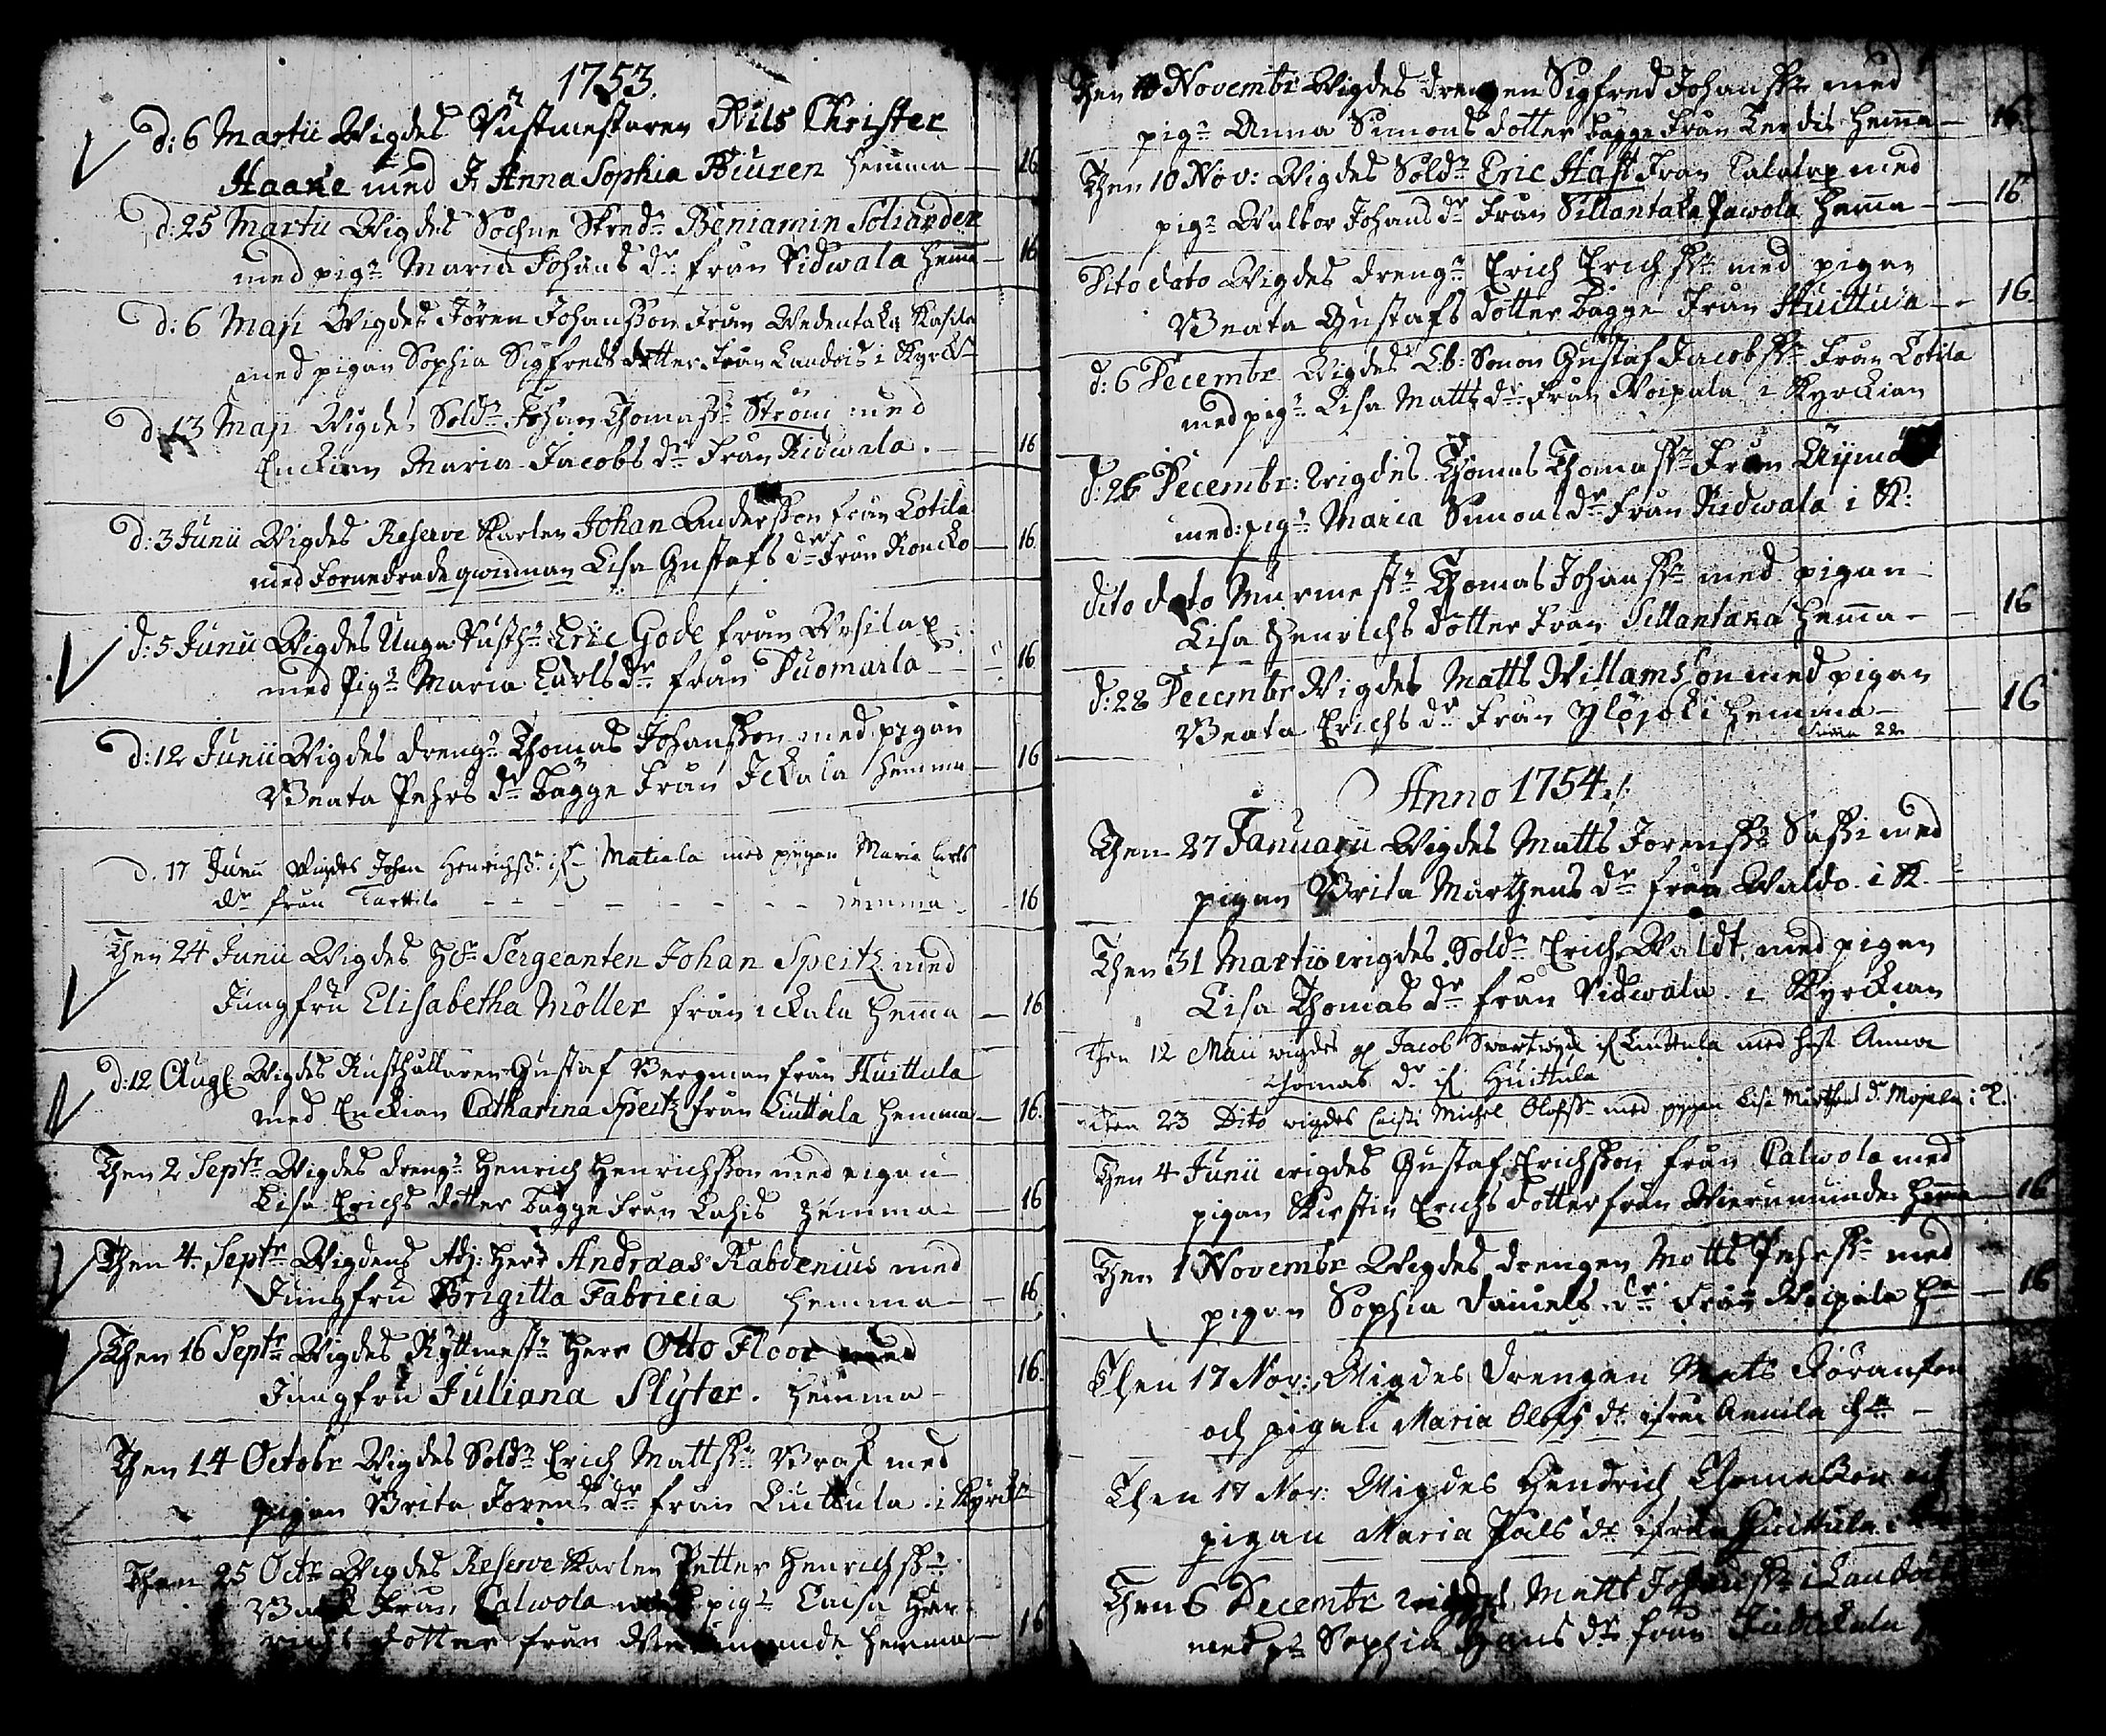 1753.
d: 6 Martii Wigdes Rustmestaren Nils Christer
Haake med J Anna Sophia Biuren hemma — 16
d: 25 Martii Wigdes Sochne Skredn Beniamin Soliander
med pign Maria Johans dr från Ridwala hema — 16
d: 6 Maji Wigdes Jören Johansson från Wedentaka
med pigan Sophia Sigfreds dotter från Laudois i Kyrck
d. 13 Maji Wigdes Soldn Johan Thomass Ström med
Enckian Maria Jacobs dr från Ridwala. — 16
d: 3 Junii Wigdes Reserve Karlen Johan Andersson från Cotila
med qwinnan Lisa Gustafs dr från Roncko — 16.
d: 5 Junii Wigdes Unga Rusth Eric Gode från Ursilax
med Pign Maria Carls dr från Puomarla — 16
d: 12 Junii Wigdes drengn Thomas Johansson med pigan
Beata Pehrs dr bägge från Ickala hemma — 16
d. 17 Junii Wigdes Johan Henrichss if Matiala med pygan Maria Carls
dr från Tarttila - - - - hemma - 16
Then 24 Junii Wigdes Hr Sergeanten Johan Speitz med
Jungfru Elisabetha Möller från ickala hema — 16
d: 12 Aug Wigdes Rusthållaren Gustaf Bergman från Huittula
med Enckian Catharina Speitz från Liuttula hemma — 16.
Then 2 Septr Wigdes drengn Henrich Henrichsson med pigan
Lisa Erichs dotter bägge från Lahis hemma — 16
Then 4 Septr Wigdens Adj: Herr Andreas Rabdenius med
Jungfru Brigitta Fabricia hemma — 16
Then 16 Septr Wigdes Ryttmestn Herr Otto Floor med
Jungfru Juliana Slÿter. hemma — 16.
Then 14 Octobr Wigdes Soldn Erich Mattssn Brax med
pigan Brita Jörens dr från Liuttula i Kyrckn
Then 25 Octr Wigdes Reserve Karlen Petter Henrichssn
från Calwola pign Caisa Hen
richs dotter från hemma — 16
Then 10 Novembr Wigdes drengen Sigfred Johanssn med
pign Anna Simons dotter bägge från Kerdis hema — 16.
Then 10 Nov: Wigdes Soldn Eric Hast från med
pign Walbor Johans dr från Sillantaka Pawola hema — 16
Dito dato Wigdes drengn Erich Erichssn med pigan
Beata Gustafs dotter bägge från Huittula — 16.
d: 6 Decembr Wigdes Lb: Sonen Gustaf Jacobssn från Cotila
med pign Lisa Matts dr från Woipala i Kyrckian
d: 26 Decembr: wigdes Thomas Thomassn från
med: pign Maria Simons dr från Ridwala i K:
dito dato Murmestn Thomas Johanssn med pigan
Lisa Henrichs dotter från Sillantaka hema — 16
d: 28 Decembr Wigdes Matts Willamsson med pigan
Beata Erichs dr från Ylöjoki hemma — 16
Suma 22
Anno 1754.
Then 27 Januarii Wigdes Matts Jörenssn Sassi med
pigan Brita Marthens dr från Waldo i K.
Then 31 Martii wigdes Soldn Erich Waldt med pigan
Lisa Thomas dr från Ridwala i Kyrckian
Then 12 Maii wigdes Jacob if Liuttula med Anna
Thomas dr if Huittula
Then 23 Dito wigdes Michel Olofss med pygan Lisa Marthens dr Mojala i K.
Then 4 Junii wigdes Gustaf Erichsson från Calwola med
pigan Kirstin Erichs dotter från Wierunummi hema — 16
Then 1 Novembr Wigdes drengen Matts Pehrssn med
pigan Sophia Daniels dr från Woipala — 16
Then 17 Nov: Wigdes drengen Mats Jöranson
och pigan Maria Olofs dr ifrån Annila
Then 17 Nov: Wigdes Hendrich Thomasson och
pigan Maria Påls dr ifrån Huittula
Then 6 Decembr wigdes Matts Johanssn i
med pn Sophia Hans dr från